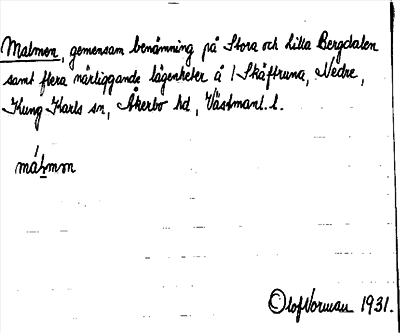 Malmen, gemensam benämning på Stora och Lilla Bergdalen
samt flera närliggande lägenheter å / Skäftruna, Nedre,
Kung Karls sn, Åkerbo hd, Västmanl. l.
málmən
Olof Norman 1931.